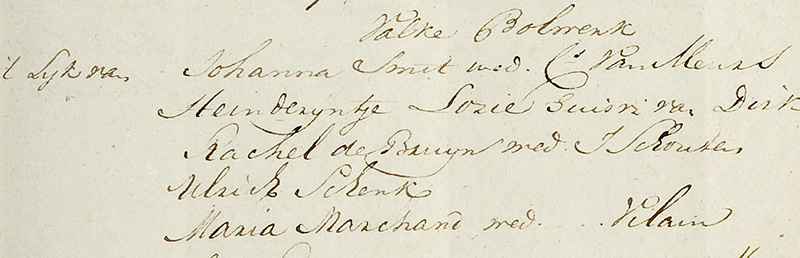 Valke Bolwerk
't Lyk van Johanna Smit wed. Cs Van Meurs
Heinderyntje Lorie huisvr van Dirk
Rachel de Bruyn wed. J Schouten
Ulrich Schenk
Maria Marchand wed. . . Vilain